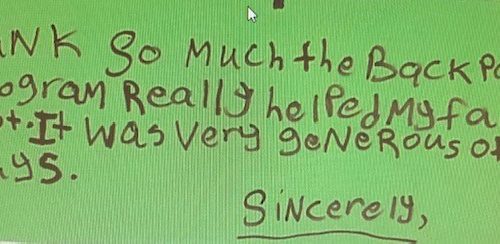 ANK SO Much the BacK Pa
ogram Really helped My fa
ot. It was very geNeRous of
ys.
Sincerely,